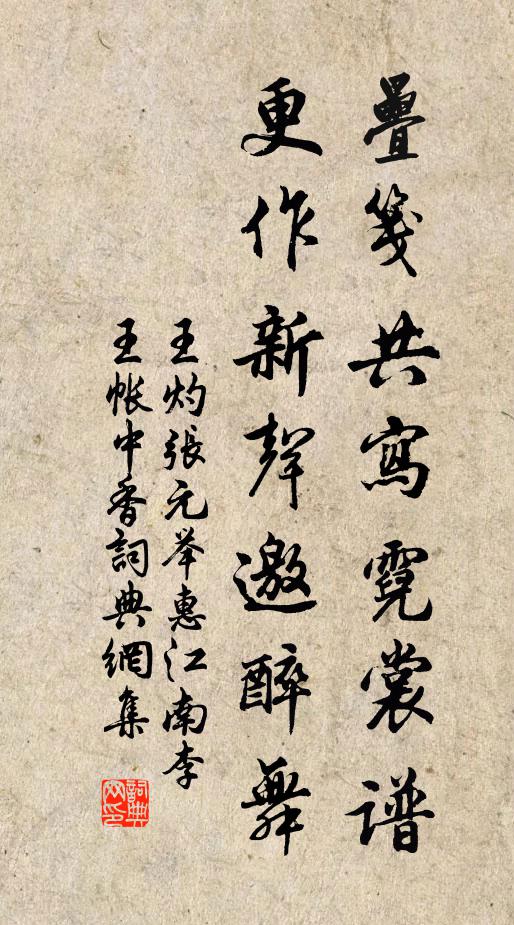 疊箋共寫霓裳譜
更作新聲邀醉舞
王灼張元举惠江南李
王帐中香詞典網集
詞典網印